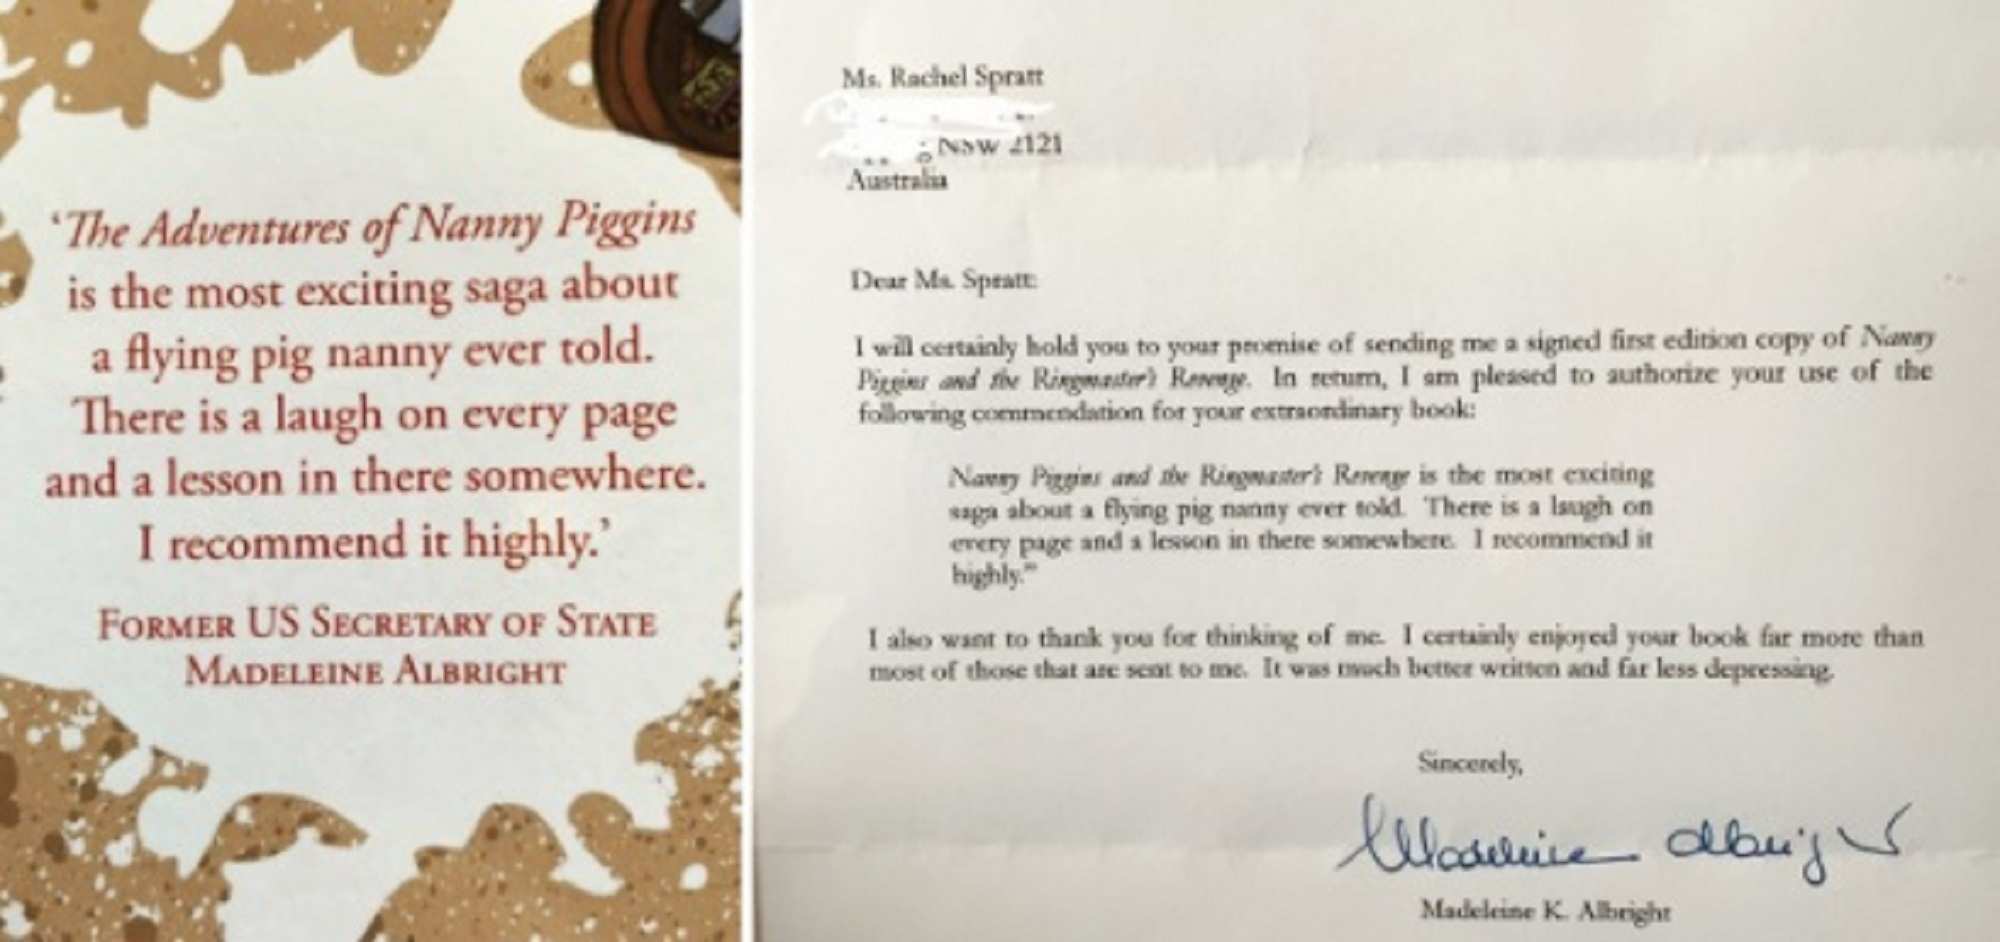 ‘The Adventures of Nanny Piggins
is the most exciting saga about
a flying pig nanny ever told.
There is a laugh on every page
and a lesson in there somewhere.
I recommend it highly.’
FORMER US SECRETARY OF STATE
MADELEINE ALBRIGHT
Ms. Rachel Spratt
NSW 2121
Australia
Dear Ms. Spratt:
I will certainly hold you to your promise of sending me a signed first edition copy of Nanny
Piggins and the Ringmaster's Revenge. In return, I am pleased to authorize your use of the
following commendation for your extraordinary book:
Nanny Piggins and the Ringmaster's Revenge is the most exciting
saga about a flying pig nanny ever told. There is a laugh on
every page and a lesson in there somewhere. I recommend it
highly.”
I also want to thank you for thinking of me. I certainly enjoyed your book far more than
most of those that are sent to me. It was much better written and far less depressing.
Sincerely,
Madeleine Albright
Madeleine K. Albright